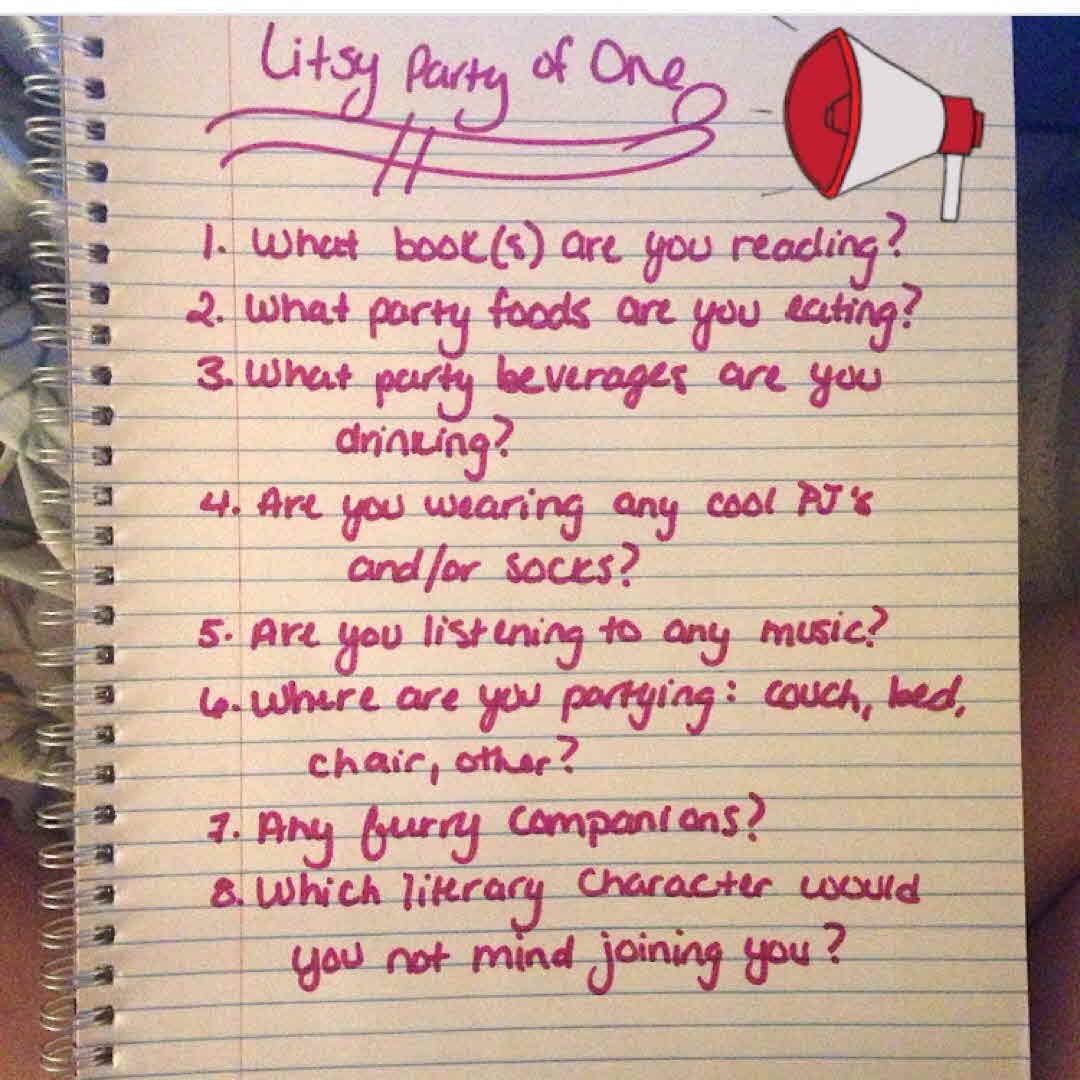 Litsy Party of One
1. What book(s) are you reading?
2. What party foods are you eating?
3. What party beverages are you
drinking?
4. Are you wearing any cool PJ's
and/or socks?
5. Are you listening to any music?
6. Where are you partying: couch, bed,
chair, other?
7. Any furry companions?
8. Which literary character would
you not mind joining you?